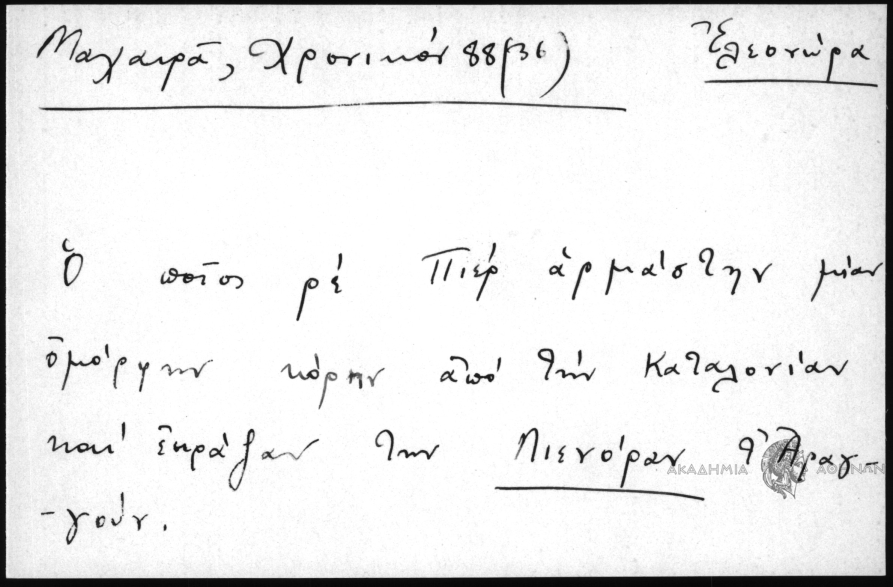 Μαχαιρᾶ, Χρονικόν 88(36) Ἐλεονώρα
Ὁ ποῖος ρὲ Πιὲρ ἁρμάστην μίαν
ὄμορφην κόρην ἀπὸ τὴν Καταλονίαν
καὶ ἐκράξαν την Λιενόραν τ' Ἀραγ-
-γούν.
ΑΚΑΔΗΜΙΑ ΑΘΗΝΩΝ